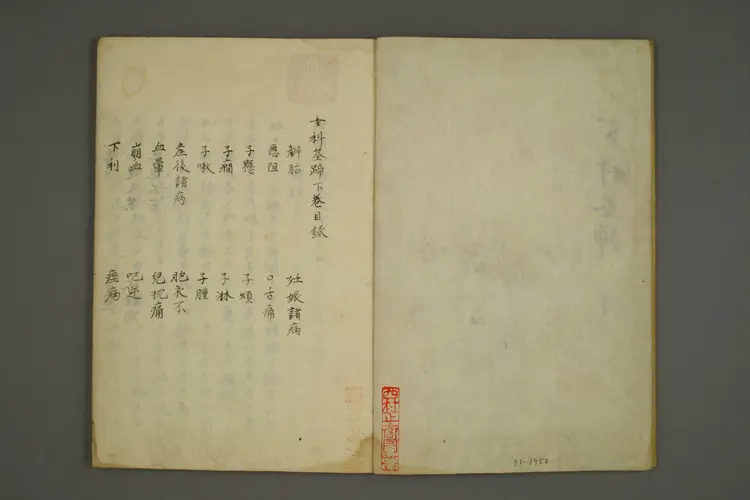 女科筌蹄下卷目錄
辨胎 妊娠諸病
惡阻 口舌痛
子懸 子煩
子癇 子淋
子嗽 子腫
産後諸病 胞衣不
血暈 兒枕痛
崩血 吃逆
下利 痙病
91-1956